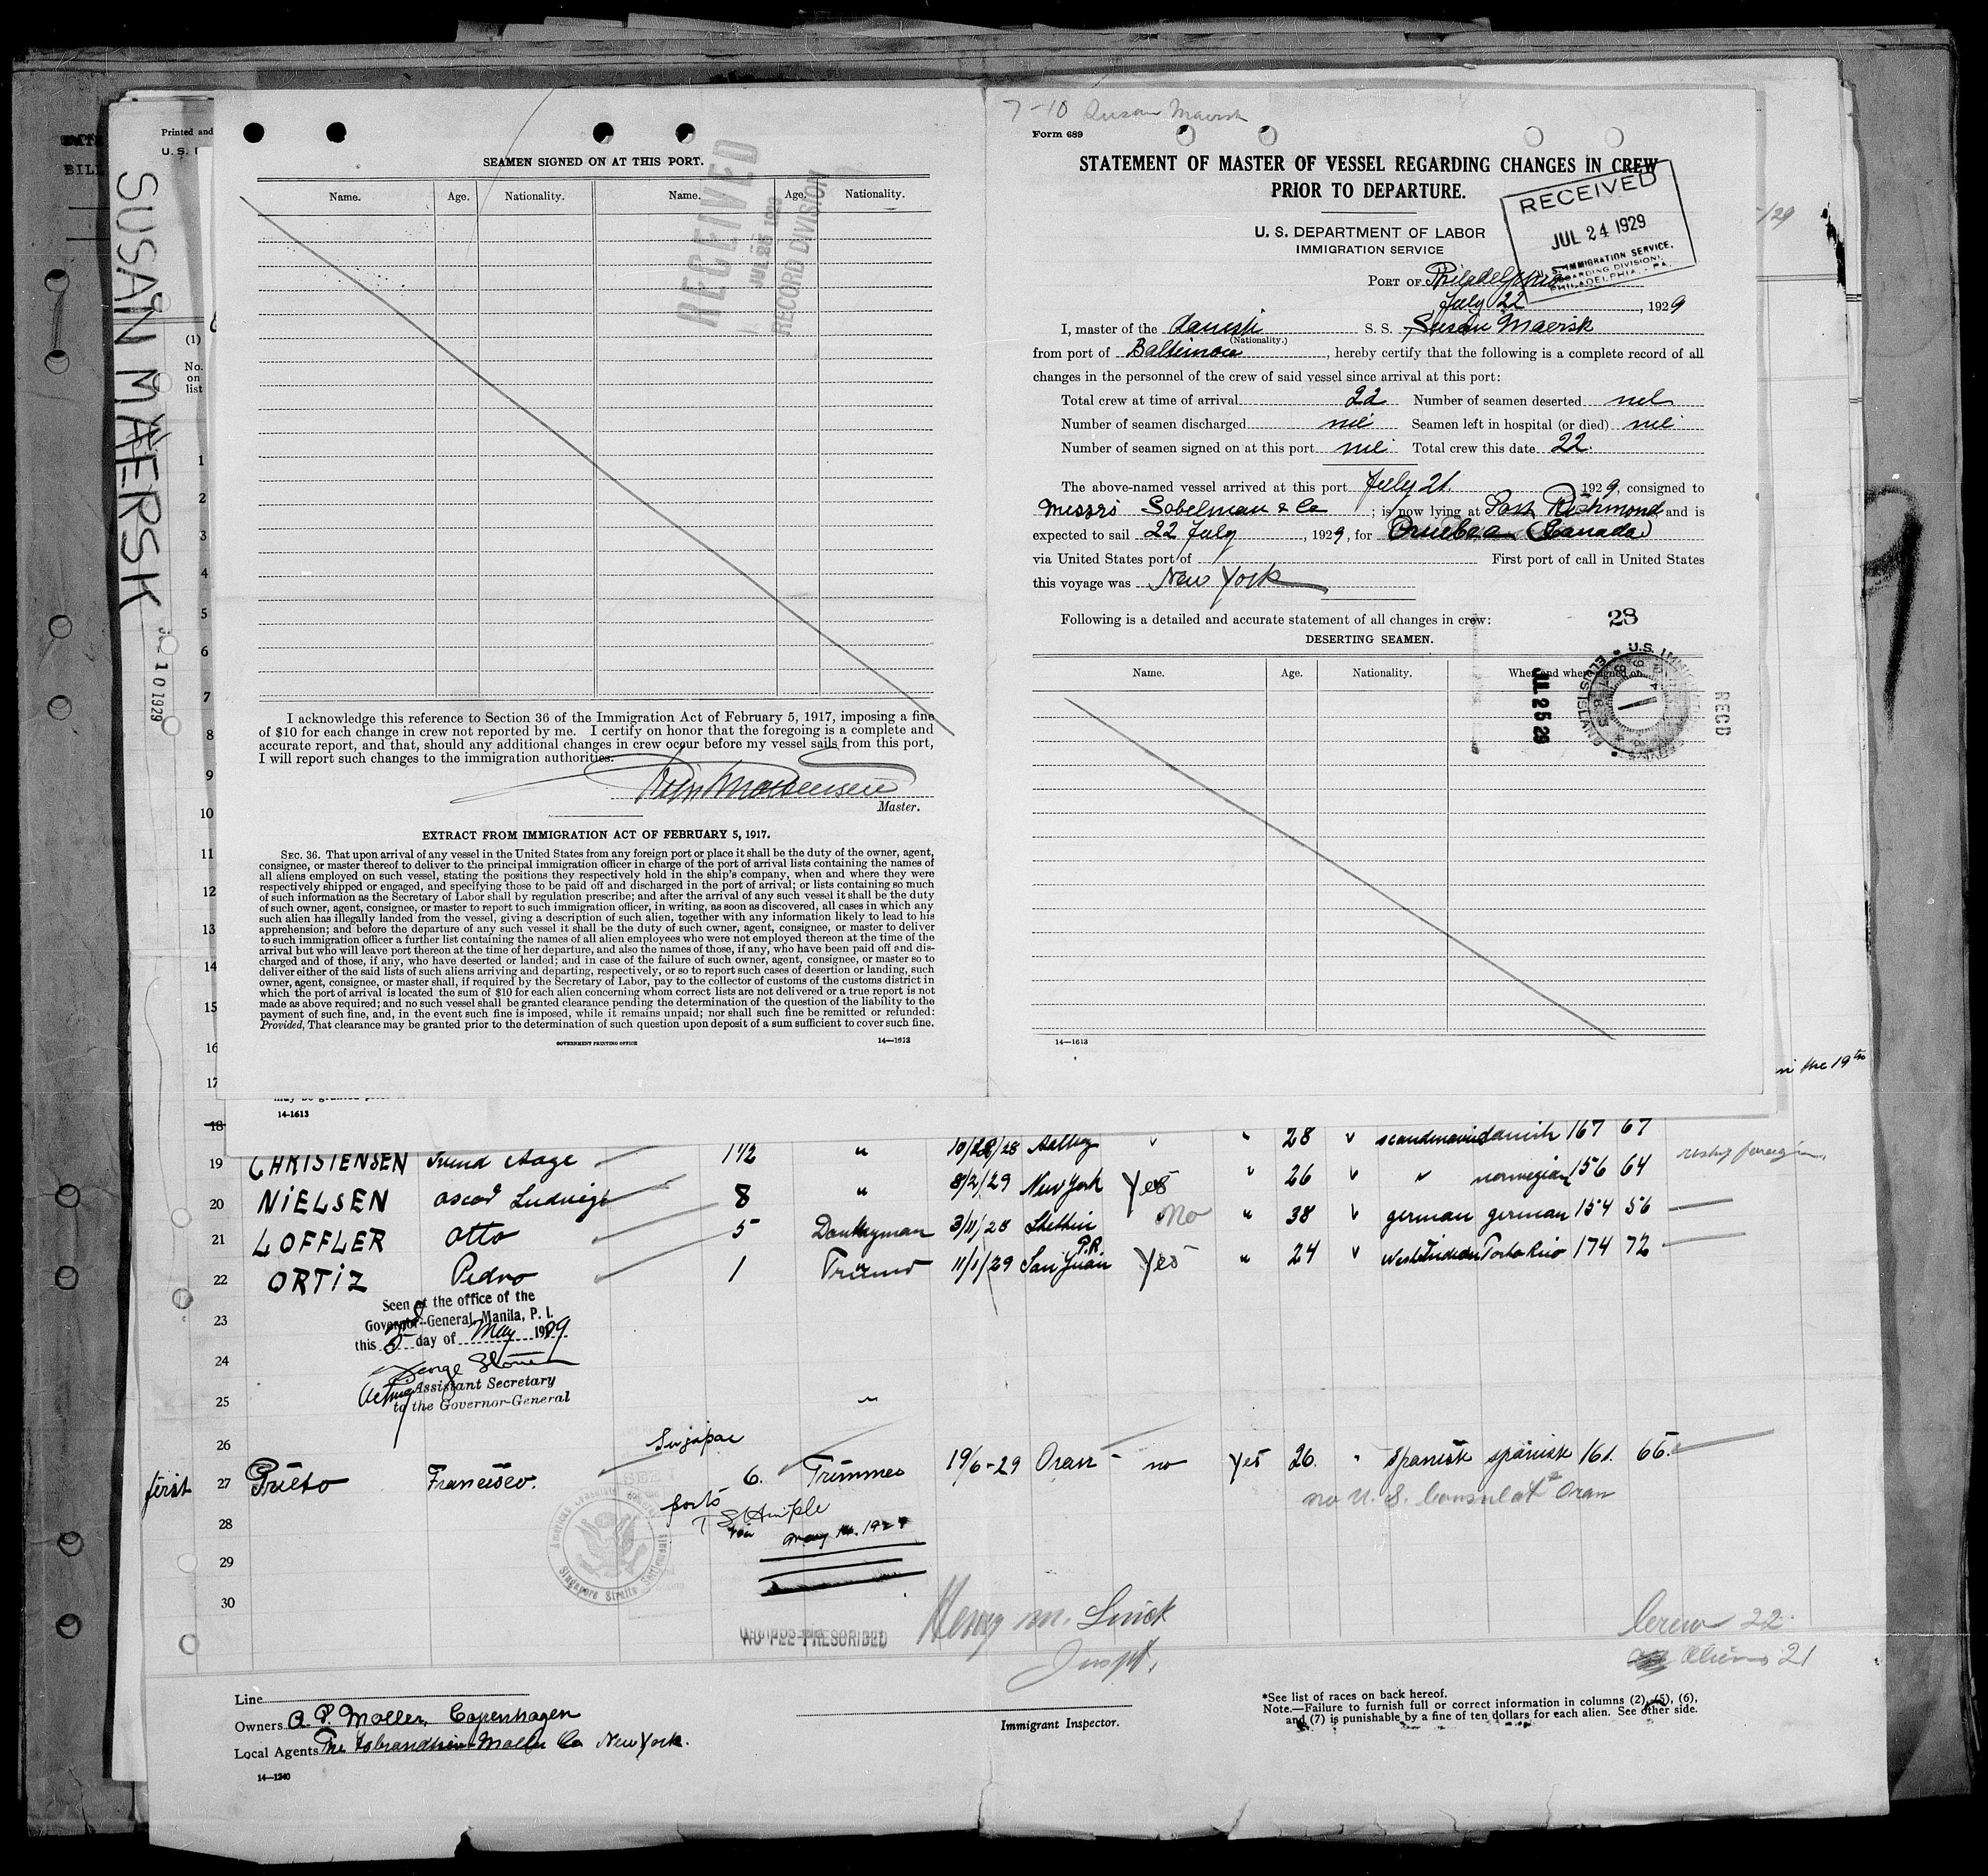 7-10 Susan Maersk
Printed and
U. S.
BILL
SUSAN MAERSK
10 1929
(1)
No.
on
list
SEAMEN SIGNED ON AT THIS PORT.
Name. Age. Nationality. Name. Age. Nationality.
RECEIVED
RECORD DIVISION
1
2
3
4
5
6
7
8
9
10
11
12
13
14
15
16
17
I acknowledge this reference to Section 36 of the Immigration Act of February 5, 1917, imposing a fine
of $10 for each change in crew not reported by me. I certify on honor that the foregoing is a complete and
accurate report, and that, should any additional changes in crew occur before my vessel sails from this port,
I will report such changes to the immigration authorities.
Master.
EXTRACT FROM IMMIGRATION ACT OF FEBRUARY 5, 1917.
SEC. 36. That upon arrival of any vessel in the United States from any foreign port or place it shall be the duty of the owner, agent,
consignee, or master thereof to deliver to the principal immigration officer in charge of the port of arrival lists containing the names of
all aliens employed on such vessel, stating the positions they respectively hold in the ship's company, when and where they were
respectively shipped or engaged, and specifying those to be paid off and discharged in the port of arrival; or lists containing so much
of such information as the Secretary of Labor shall by regulation prescribe; and after the arrival of any such vessel it shall be the duty
of such owner, agent, consignee, or master to report to such immigration officer, in writing, as soon as discovered, all cases in which any
such alien has illegally landed from the vessel, giving a description of such alien, together with any information likely to lead to his
apprehension; and before the departure of any such vessel it shall be the duty of such owner, agent, consignee, or master to deliver
to such immigration officer a further list containing the names of all alien employees who were not employed thereon at the time of the
arrival but who will leave port thereon at the time of her departure, and also the names of those, if any, who have been paid off and dis-
charged and of those, if any, who have deserted or landed; and in case of the failure of such owner, agent, consignee, or master so to
deliver either of the said lists of such aliens arriving and departing, respectively, or so to report such cases of desertion or landing, such
owner, agent, consignee, or master shall, if required by the Secretary of Labor, pay to the collector of customs of the customs district in
which the port of arrival is located the sum of $10 for each alien concerning whom correct lists are not delivered or a true report is not
made as above required; and no such vessel shall be granted clearance pending the determination of the question of the liability to the
payment of such fine, and, in the event such fine is imposed, while it remains unpaid; nor shall such fine be remitted or refunded:
Provided, That clearance may be granted prior to the determination of such question upon deposit of a sum sufficient to cover such fine.
GOVERNMENT PRINTING OFFICE
14-1613
Form 689
STATEMENT OF MASTER OF VESSEL REGARDING CHANGES IN CREW
PRIOR TO DEPARTURE.
RECEIVED
JUL 24 1929
U. S. IMMIGRATION SERVICE,
PHILADELPHIA, PA.
U. S. DEPARTMENT OF LABOR
IMMIGRATION SERVICE
PORT OF Philadelphia
July 22, 1929
I, master of the danish S. S. Susan Maersk
(Nationality.)
from port of Baltimore, hereby certify that the following is a complete record of all
changes in the personnel of the crew of said vessel since arrival at this port:
Total crew at time of arrival 22 Number of seamen deserted nil
Number of seamen discharged nil Seamen left in hospital (or died) nil
Number of seamen signed on at this port nil Total crew this date 22.
The above-named vessel arrived at this port July 21. 1929, consigned to
Messrs Sobelman & Co; is now lying at Port Richmond and is
expected to sail 22 July, 1929, for (Canada)
via United States port of First port of call in United States
this voyage was New York
Following is a detailed and accurate statement of all changes in crew:
28
DESERTING SEAMEN.
Name. Age. Nationality. When and where signed on.
JUL 25 29
U.S. IMMIGRATION
ELLIS ISLAND
RECD
14-1613
in the 19th
14-1613
18 10/28 28 v scandinavian danish 167 67
19 CHRISTENSEN Svend Aage 1½ " 8/2/29 New York Yes " 26 v " norwegian 156 64
20 NIELSEN Oscar Ludvig 8 " 38 v german german 154 56
21 LOFFLER Otto 5 Donkeyman 3/11/28 Stettin No
22 ORTIZ Pedro 1 Trimmer 11/1/29 San Juan P.R. Yes " 24 v West Indian Porto Rico 174 72
Seen at the office of the
Governor-General, Manila, P. I.
this day of May 1929
George
Acting Assistant Secretary
to the Governor-General
23
24
25
26
Singapore
first 27 Prieto Francisco. 6. Trimmer 19/6-29 Oran - no yes 26. " Spanish spanish 161. 65.
no U. S. Consulate Oran
ports
May 14. 1929
American Consulate General
Singapore Straits Settlements
28
29
30
NO FEE PRESCRIBED
Henry M. Linck
Inspt.
Crew 22
Aliens 21
Line
Owners A. P. Moller, Copenhagen
Local Agents The Isbrandtsen-Moller Co New York.
14-1240
Immigrant Inspector.
*See list of races on back hereof.
Note.—Failure to furnish full or correct information in columns (2), (5), (6),
and (7) is punishable by a fine of ten dollars for each alien. See other side.